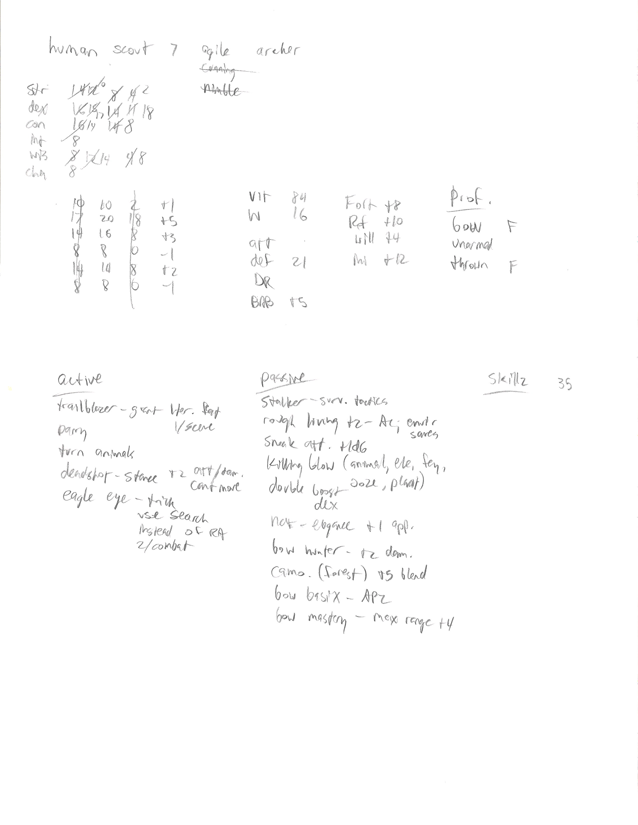 human scout 7 agile archer
cunning
nimble
Str 14 8 4 2
dex 14 18
con 14 8
Int 8
wis 8 14 8
cha 8
10 2 +1
17 20 18 +5
14 16 8 +3
8 8 0 -1
14 14 8 +2
8 8 0 -1
Vit 84
W 16
att
def 21
DR
BAB +5
Fort +8
Ref +10
will +4
Ini +12
Prof.
bow F
unarmed
thrown F
active
trailblazer - grant ter. feat
1/scene
parry
turn animals
deadshot - stance +2 att/dam.
cant move
eagle eye - trick
use search
instead of RA
2/combat
passive
Stalker - surv. tactics
rough living +2 - AC; envir
saves
Sneak att. +1d6
killing blow (animal, ele, fey,
ooze, plant)
double boost
dex
not - elegance +1 app.
bow hunter - +2 dam.
camo. (forest) +5 blend
bow basix - AP2
bow mastery - max range +4
Skillz 35